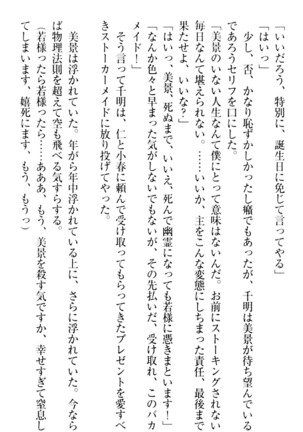 「いいだろう、特別に、誕生日に免じて言ってやる」
「はいっ」
少し、否、かなり恥ずかしかったし痛でもあったが、千明は美景が待ち望んでいる
であろうセリフを口にした。
「美景のいない人生なんて僕にとって意味はないんだ。お前にストーキングされない
毎日なんて堪えられない。……いいか、主をこんな変態にしちまった責任、最後まで
果たせよ、いいな？」
「はいっ、美景、死ぬまで、いいえ、死んで幽霊になっても若様に憑きまといます！」
「なんか色々と早まった気がしないでもないが、その先払いだ、受け取れ、このバカ
メイド！」
そう言って千明は、仁と小春に頼んで受け取ってもらってきたプレゼントを愛すべ
きストーカーメイドに放り投げてやった。
美景は浮かれていた。年がら年中浮かれている上に、さらに浮かれていた。今なら
ば物理法則を超えて空も飛べる気すらする。
（若様ったら若様ったら……ああ、もう、美景を殺す気ですか、幸せすぎて窒息し
てしまいます、嬉死にます、もう、もうっ）